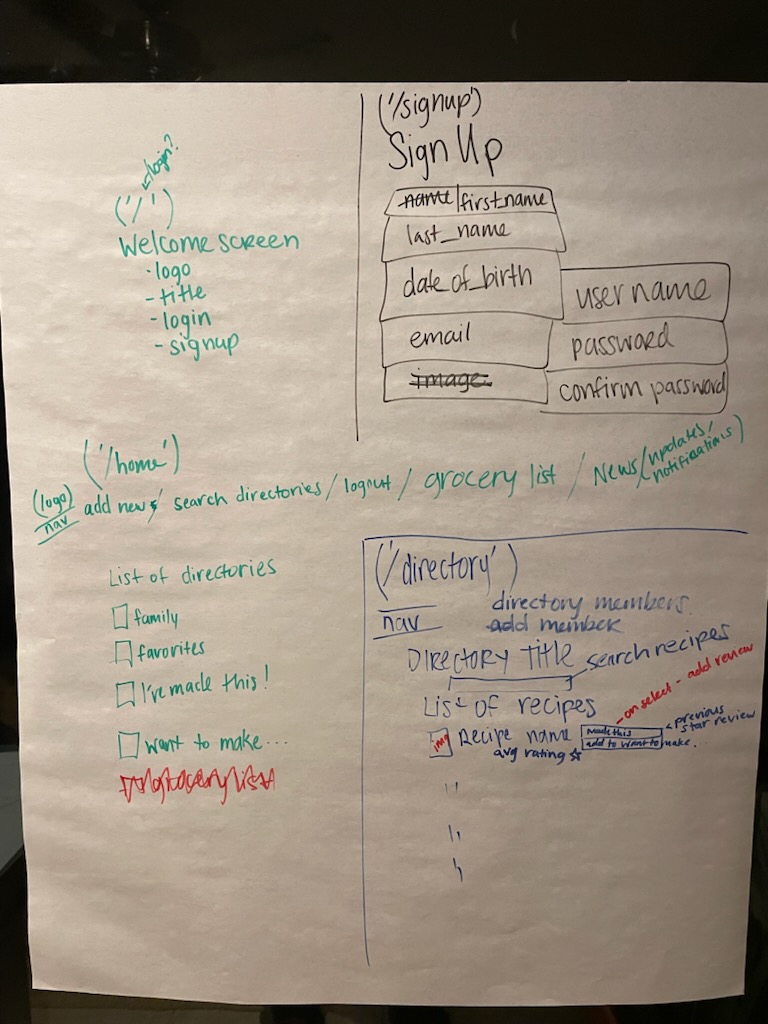 login?
('/')
Welcome screen
- logo
- title
- login
- signup
('/signup')
Sign Up
name | first_name
last_name
date_of_birth
email
image
user name
password
confirm password
('/home')
(logo)
nav
add new / search directories / logout / grocery list / News (updates/
notifications)
List of directories
family
favorites
I've made this!
want to make...
grocery list
('/directory')
nav
directory members
add member
Directory Title
search recipes
List of recipes
img
Recipe name
avg rating ☆
made this
add to want to make...
- on select - add review
< previous
star review